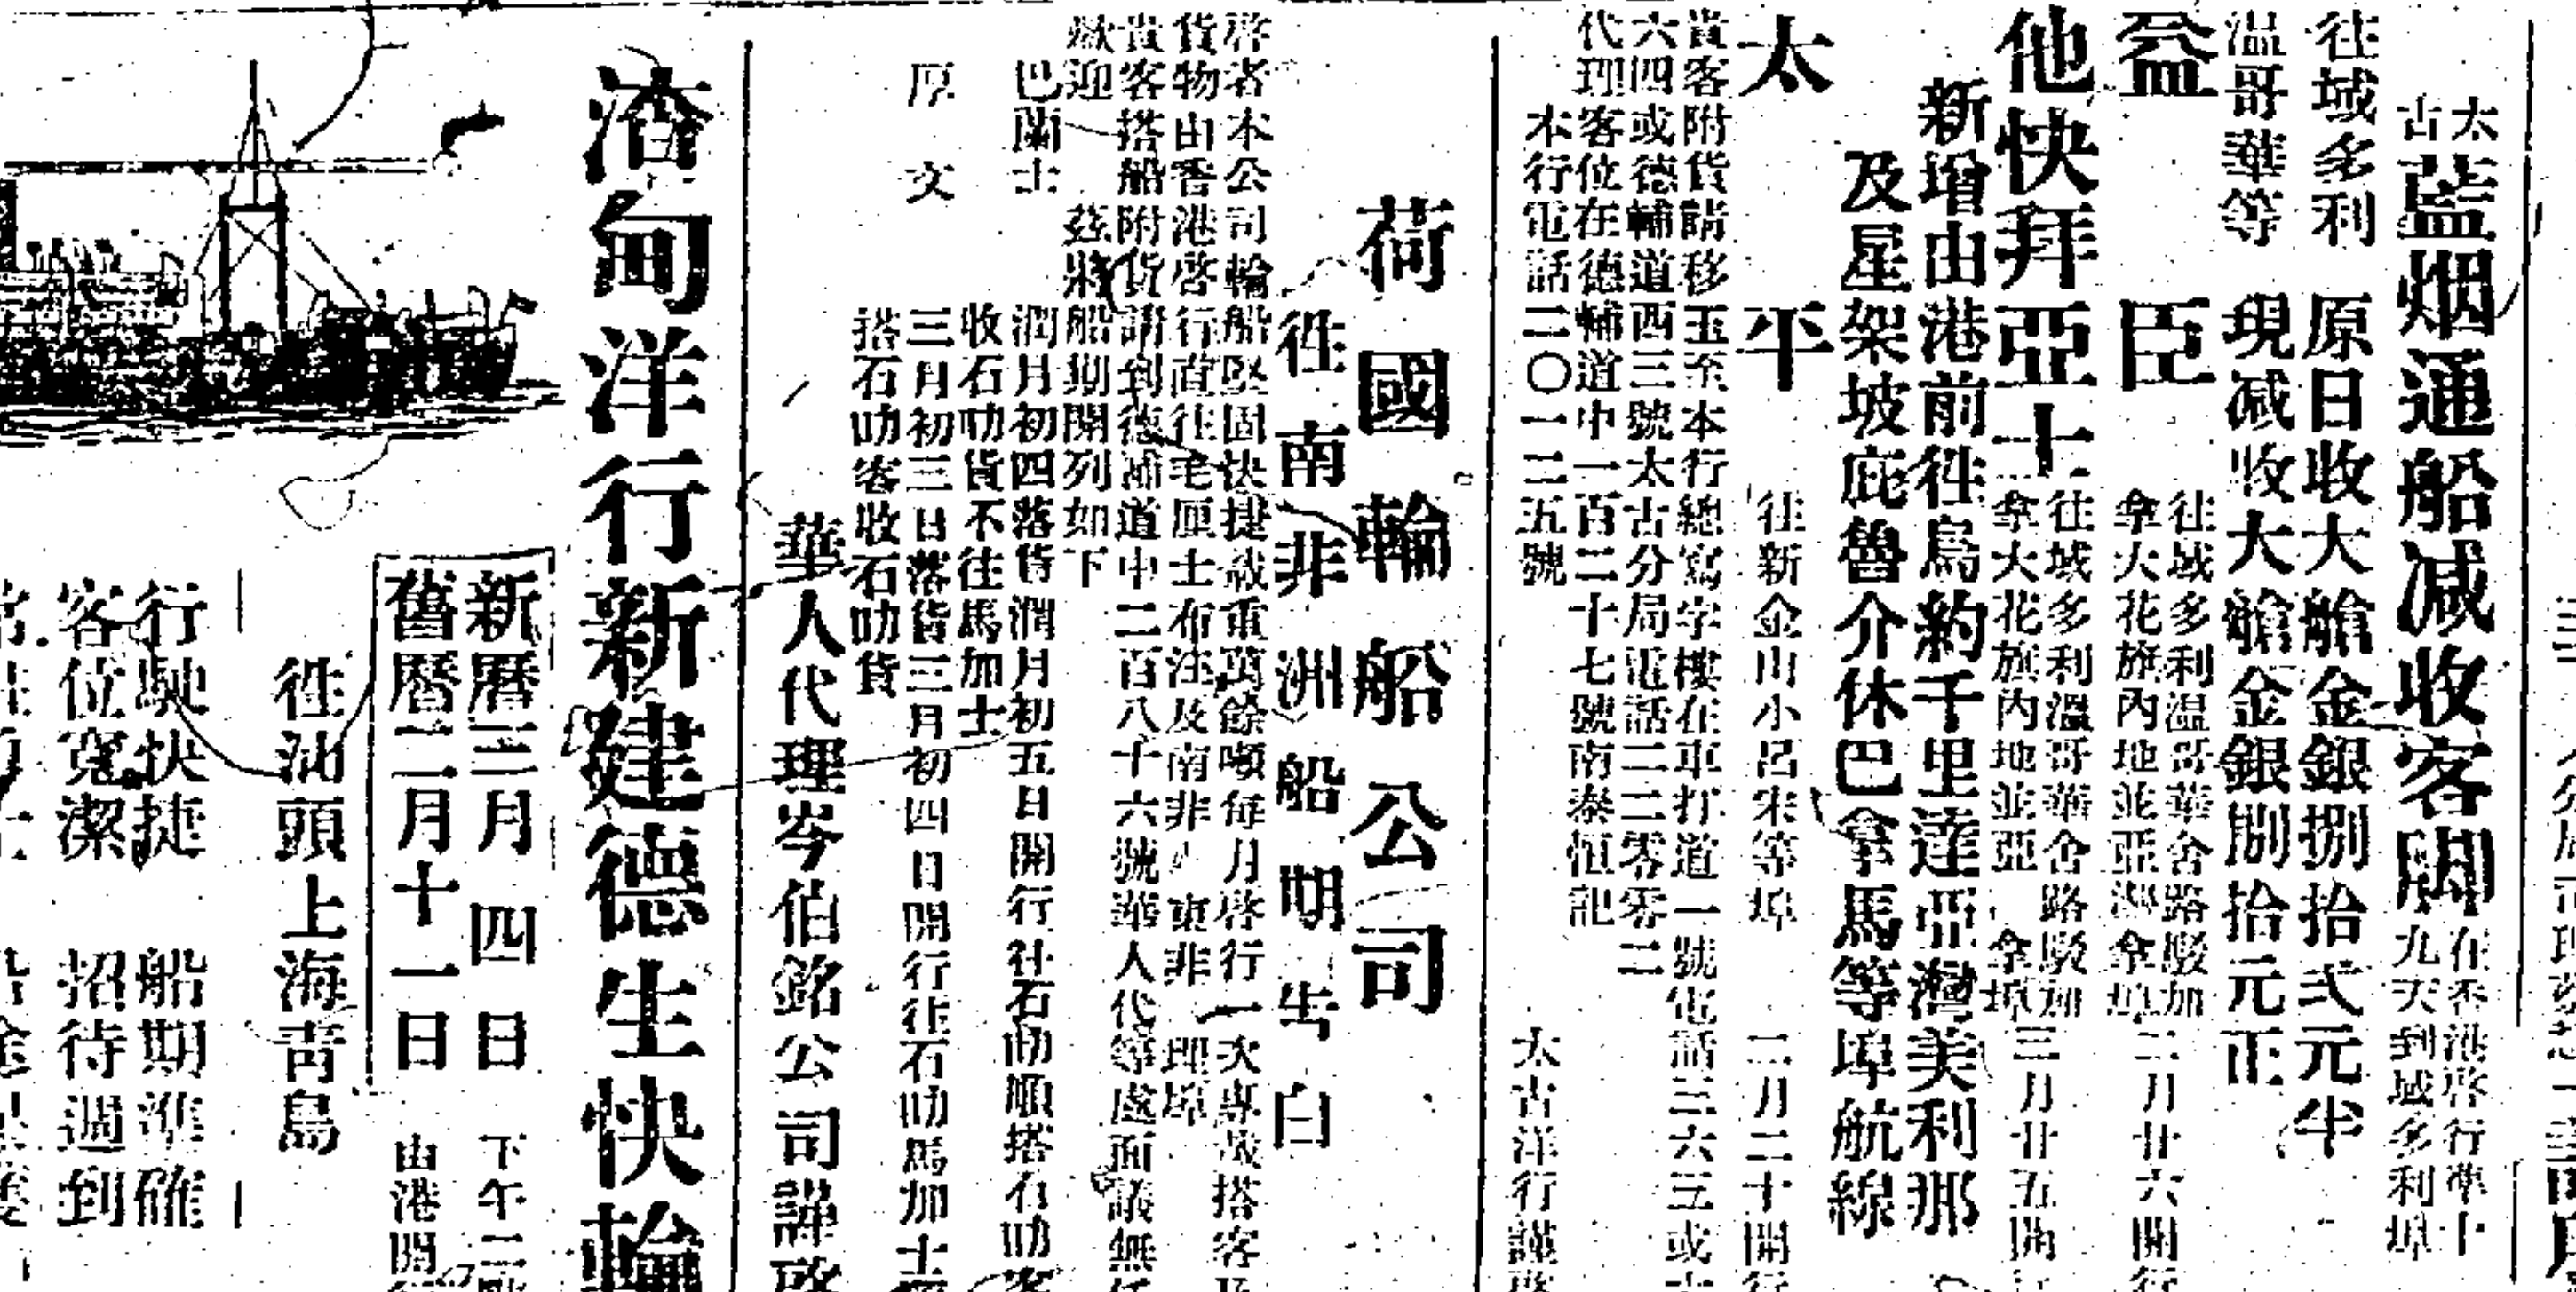 太古藍烟通船减收客脚
在香港啓行準十
九天到域多利埠
往域多利 原日收大艙金銀捌拾弍元半
溫哥華等 現减收大艙金銀捌拾元正
益臣
往域多利温哥華舍路駁加
拿大花旗內地並亞灣拿埠
二月廿六開行
他快拜亞士
往域多利溫哥華舍路駁加
拿大花旗內地並亞 拿埠
三月廿五開
新增由港前往鳥約千里達亞灣美利那
及星架坡庇魯介休巴拿馬等埠航線
太平
往新金山小呂宋等埠
二月二十開行
貴客附貨請移玉至本行總寫字樓在車打道一號電話三六三或
六四或德輔道西三號太古分局電話二二零零二
代理客位在德輔道中一百二十七號南泰恒記
本行電話二〇一二五號
太古洋行謹啓
荷國輪船公司
往南非洲船期告白
啓者本公司輪船堅固快捷載重萬餘噸每月啓行一次專載搭客及
貨物由香港啓行直往毛厘士布汪及南非 東非 埠
貴客搭船附貨請到德補道中二百八十六號華人代 等處面議無任
歡迎 茲將船期開列如下
巴蘭士 潤月初四落貨潤月初五日開行往石叻順搭石叻客
收石叻貨不往馬加士
厚文 三月初三日落貨三月初四日開行往石叻馬加士
搭石叻客收石叻貨
華人代理岑伯銘公司謹啓
渣甸洋行新建德生快輪
新曆三月四日 下午二
舊曆二月十一日 由港開行
往汕頭上海靑島
行駛快捷 船期準確
客位寬潔 招待週到